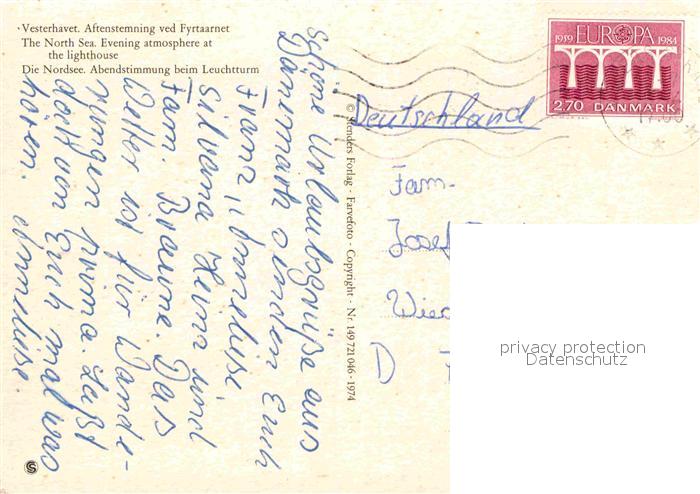 Vesterhavet. Aftenstemning ved Fyrtaarnet
The North Sea. Evening atmosphere at
the lighthouse
Die Nordsee. Abendstimmung beim Leuchtturm
Schöne Urlaubsgrüße aus
Dänemark senden Euch
Franz, Anneliese
Silvana Heinz und
Fam. Braune. Das
Wetter ist für Wande-
rungen prima. Laßt
doch von Euch mal was
hören. Anneliese
© Stenders Forlag - Farvefoto - Copyright - Nr. 149 721 046 - 1974
1959 EUROPA 1984
2.70 DANMARK
Deutschland
Fam.
Josef
D
privacy protection
Datenschutz